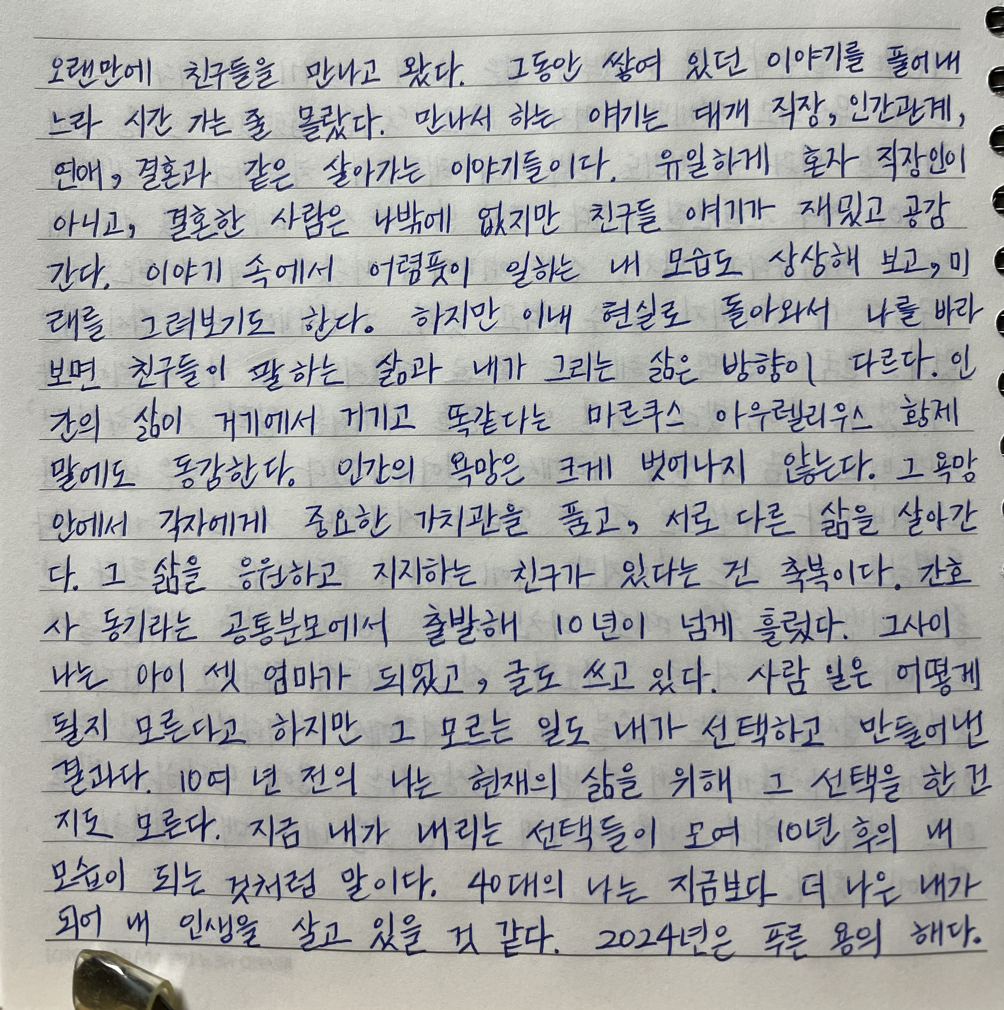 오랜만에 친구들을 만나고 왔다. 그동안 쌓여 있던 이야기를 풀어내
느라 시간 가는 줄 몰랐다. 만나서 하는 얘기는 대개 직장, 인간관계,
연애, 결혼과 같은 살아가는 이야기들이다. 유일하게 혼자 직장인이
아니고, 결혼한 사람은 나밖에 없지만 친구들 얘기가 재밌고 공감
간다. 이야기 속에서 어렴풋이 일하는 내 모습도 상상해 보고, 미
래를 그려보기도 한다. 하지만 이내 현실로 돌아와서 나를 바라
보면 친구들이 말하는 삶과 내가 그리는 삶은 방향이 다르다. 인
간의 삶이 거기에서 거기고 똑같다는 마르쿠스 아우렐리우스 황제
말에도 동감한다. 인간의 욕망은 크게 벗어나지 않는다. 그 욕망
안에서 각자에게 중요한 가치관을 품고, 서로 다른 삶을 살아간
다. 그 삶을 응원하고 지지하는 친구가 있다는 건 축복이다. 간호
사 동기라는 공통분모에서 출발해 10년이 넘게 흘렀다. 그사이
나는 아이 셋 엄마가 되었고, 글도 쓰고 있다. 사람 일은 어떻게
될지 모른다고 하지만 그 모르는 일도 내가 선택하고 만들어낸
결과다. 10여 년 전의 나는 현재의 삶을 위해 그 선택을 한 건
지도 모른다. 지금 내가 내리는 선택들이 모여 10년 후의 내
모습이 되는 것처럼 말이다. 40대의 나는 지금보다 더 나은 내가
되어 내 인생을 살고 있을 것 같다. 2024년은 푸른 용의 해다.